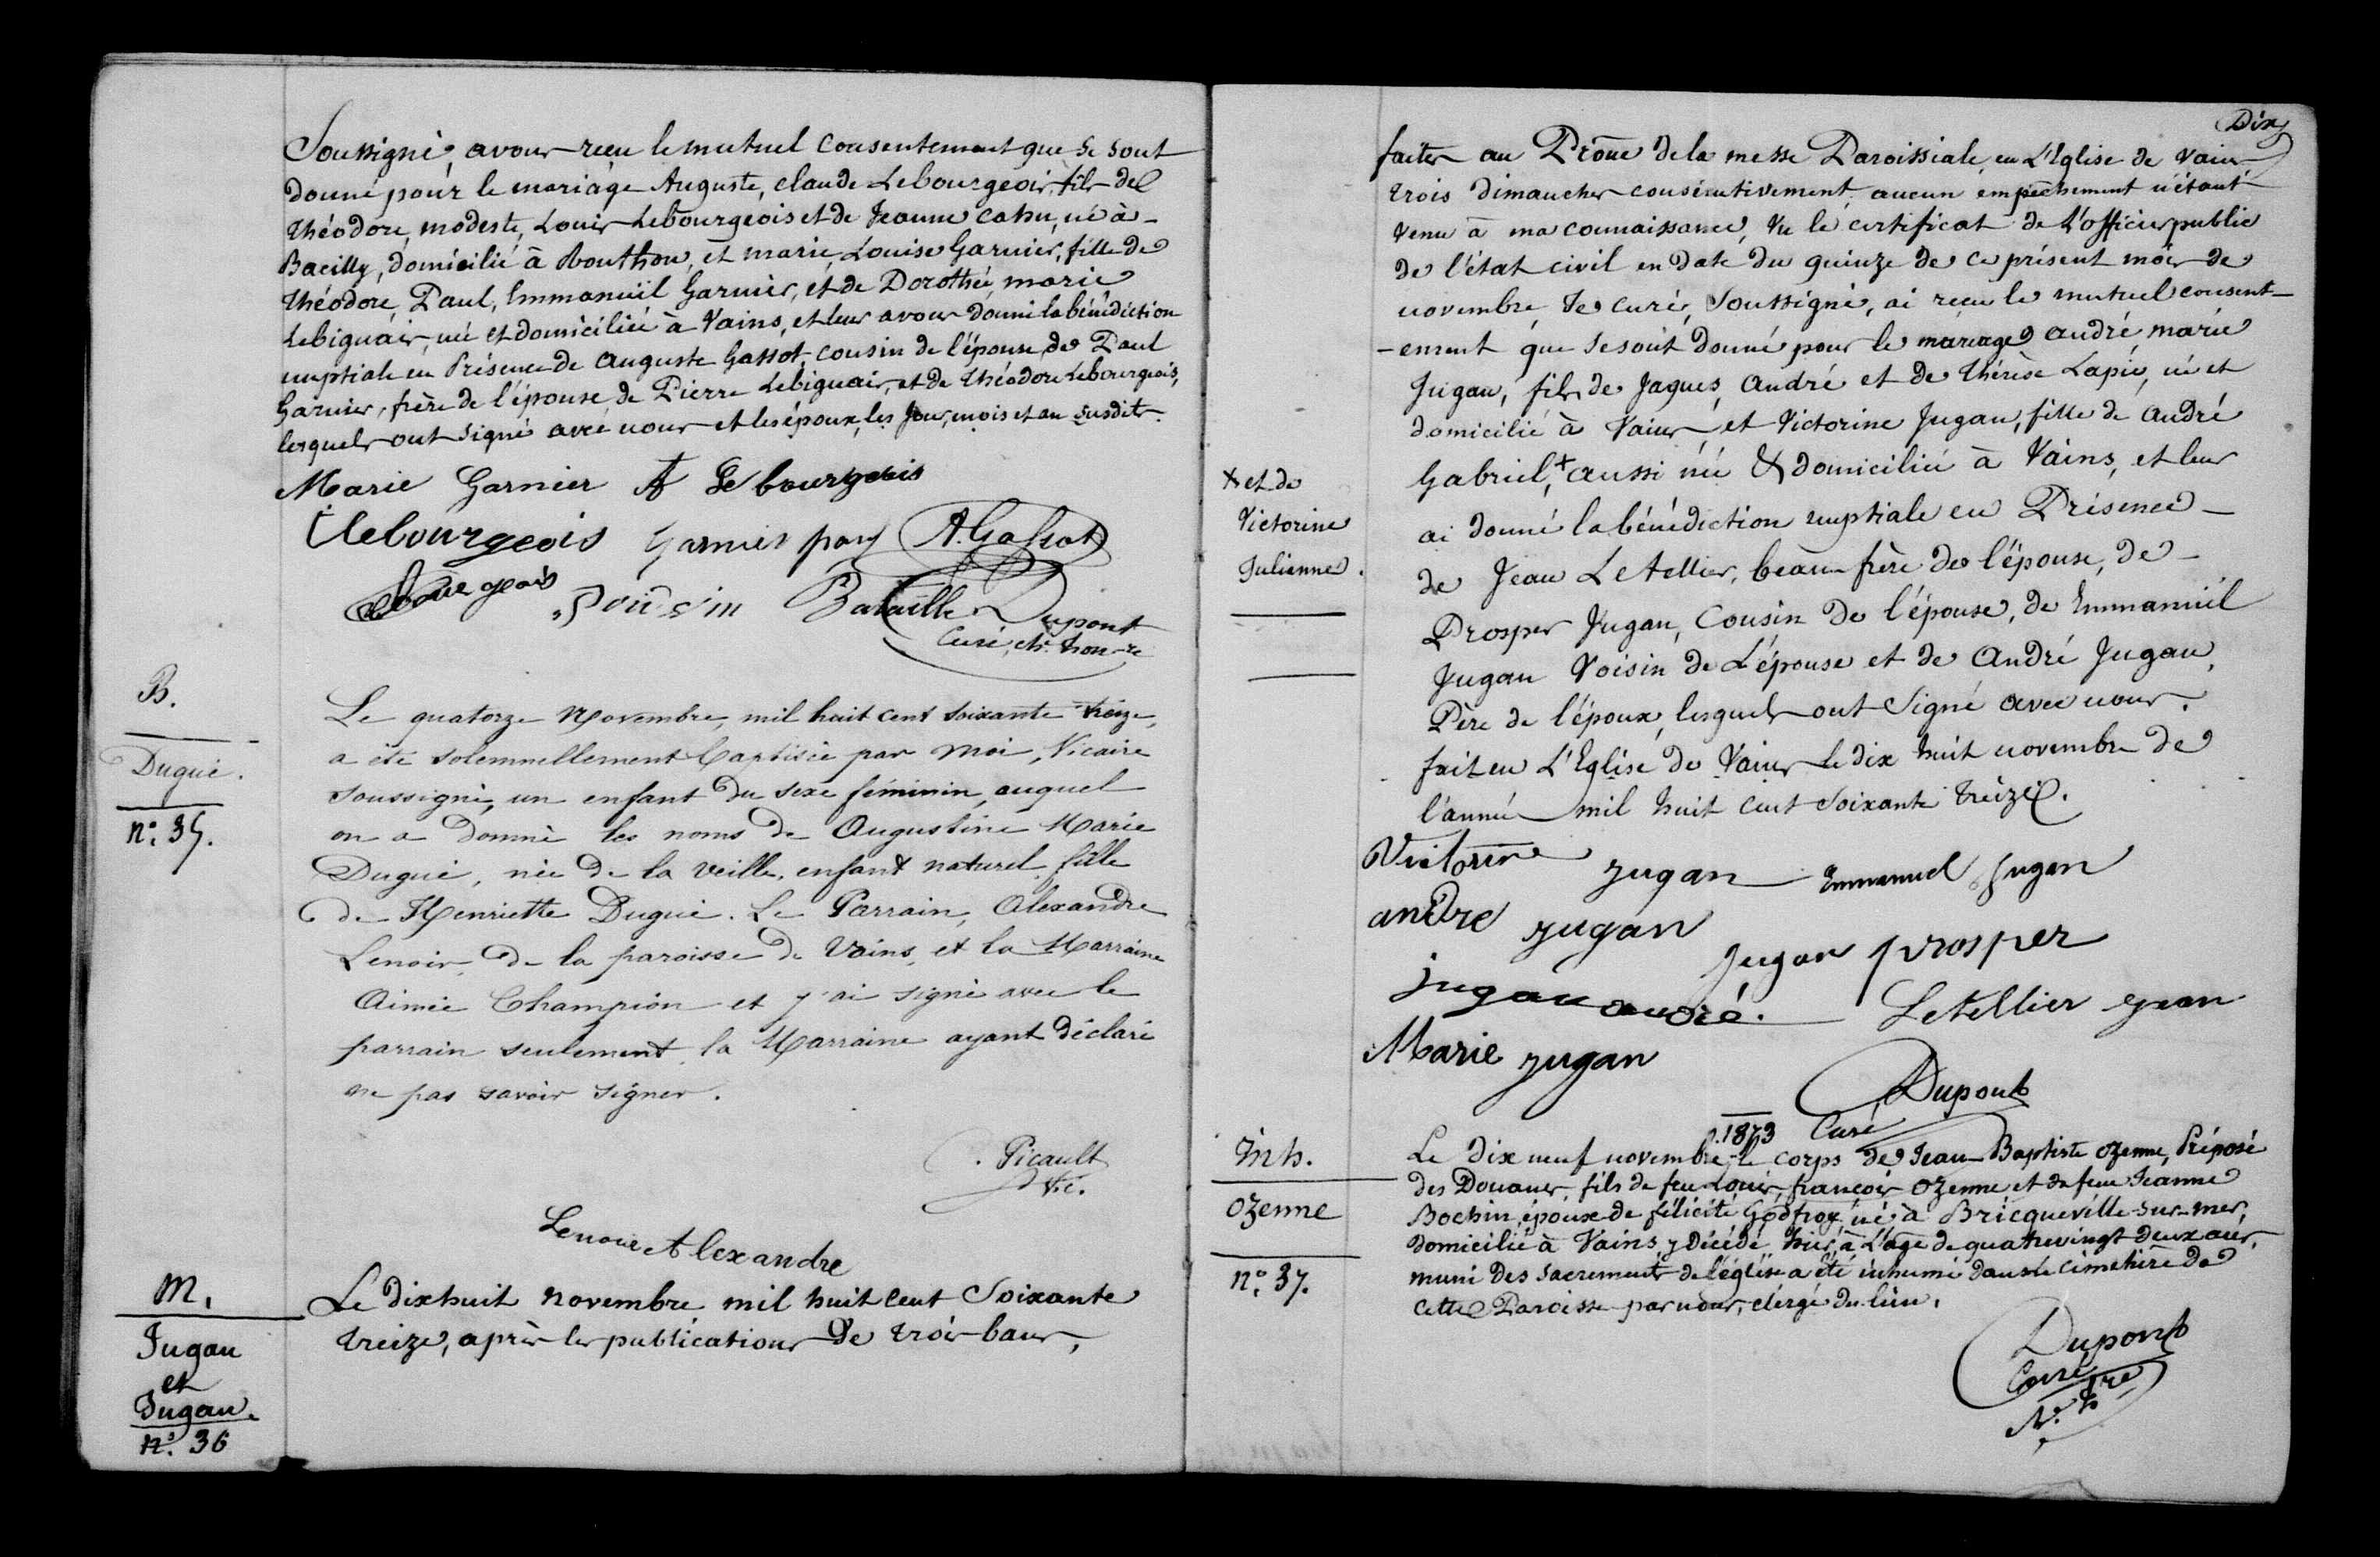 Soussigné, avons reçu le mutuel consentement que se sont
donné pour le mariage Auguste, claude Lebourgeois, fils de
théodore, modeste, Louis Lebourgeois et de Jeanne cahu, né à
Bacilly, domicilié à Routhon, et marie, Louise Garnier, fille de
théodore, Paul, Emmanuël Garnier, et de Dorothée, marie
Lebiguais, née et domiciliée à Vains, et leur avons donné la bénédiction
nuptiale en Présence de Auguste Gassot, cousin de l'épouse, de Paul
Garnier, frère de l'épouse, de Pierre Lebiguais, et de théodore Lebourgeois,
lesquels ont signé avec nous et les époux, les Jour, mois et an susdits.
Marie Garnier A Lebourgeois
Lebourgeois Garnier paul A. Gassot
Lebourgeois Bataille Dupont
Curé, ch. hon-re
B.
Dugué.
n°. 35.
Le quatorze Novembre, mil huit cent soixante treize,
a été solemnellement baptisée par moi, Vicaire
soussigné, un enfant du sexe féminin, auquel
on a donné les noms de Augustine Marie
Dugué, née de la veille, enfant naturel, fille
de Henriette Dugué. Le Parrain, Alexandre
Lenoir, de la paroisse de Vains, et la Marraine
Aimée Champion et j'ai signé avec le
parrain seulement, la Marraine ayant déclaré
ne pas savoir signer.
Picault
Vic.
Lenoir Alexandre
M.
Jugan
et
Jugan.
n°. 36
Le dixhuit novembre mil huit cent Soixante
treize, après les publications de trois bans,
Dix
faites au Prône de la messe Paroissiale, en L'Eglise de Vains
trois dimanches consécutivement, aucun empêchement n'étant
venu à ma connaissance, Vu le certificat de L'officier public
de l'état civil en Date du quinze de ce présent mois de
novembre, Je curé, Soussigné, ai reçu le mutuel consent-
-ement que se sont donné pour le mariage andré, marie
Jugan, fils de Jaques, André et de thérèse Lapie, né et
domicilié à Vains, et Victorine Jugan, fille de André
Gabriel,+ aussi née & domiciliée à Vains, et leur
x et de
Victorine
Julienne.
ai donné la bénédiction nuptiale en Présence
de Jean Letellier, beau-frère de l'épouse, de
Prosper Jugan, Cousin de l'épouse, de Emmanuël
Jugan Voisin de L'épouse et de André Jugan,
Père de l'époux, lesquels ont Signé avec nous.
fait en L'Eglise de Vains le dix huit novembre de
l'année mil huit cent soixante treize.
Victorine Jugan Emmanuel Jugan
andre Jugan
Jugan prosper
jugan andré. Letellier jean
Marie Jugan
Dupont
Curé
Inh.
Ozenne
n°. 37.
1873
Le dix neuf novembre, le corps de Jean Baptiste Ozenne, Préposé
des Douanes, fils de feu Louis, françois Ozenne et de feue Jeanne
Bochin, époux de félicité Godfroy, né à Bricqueville-sur-mer,
domicilié à Vains, y décédé hier, à L'âge de quatrevingt deux ans,
muni des sacrements de l'église a été inhumé dans le cimetière de
cette Paroisse par nous, clergé du lieu.
Dupont
Curé